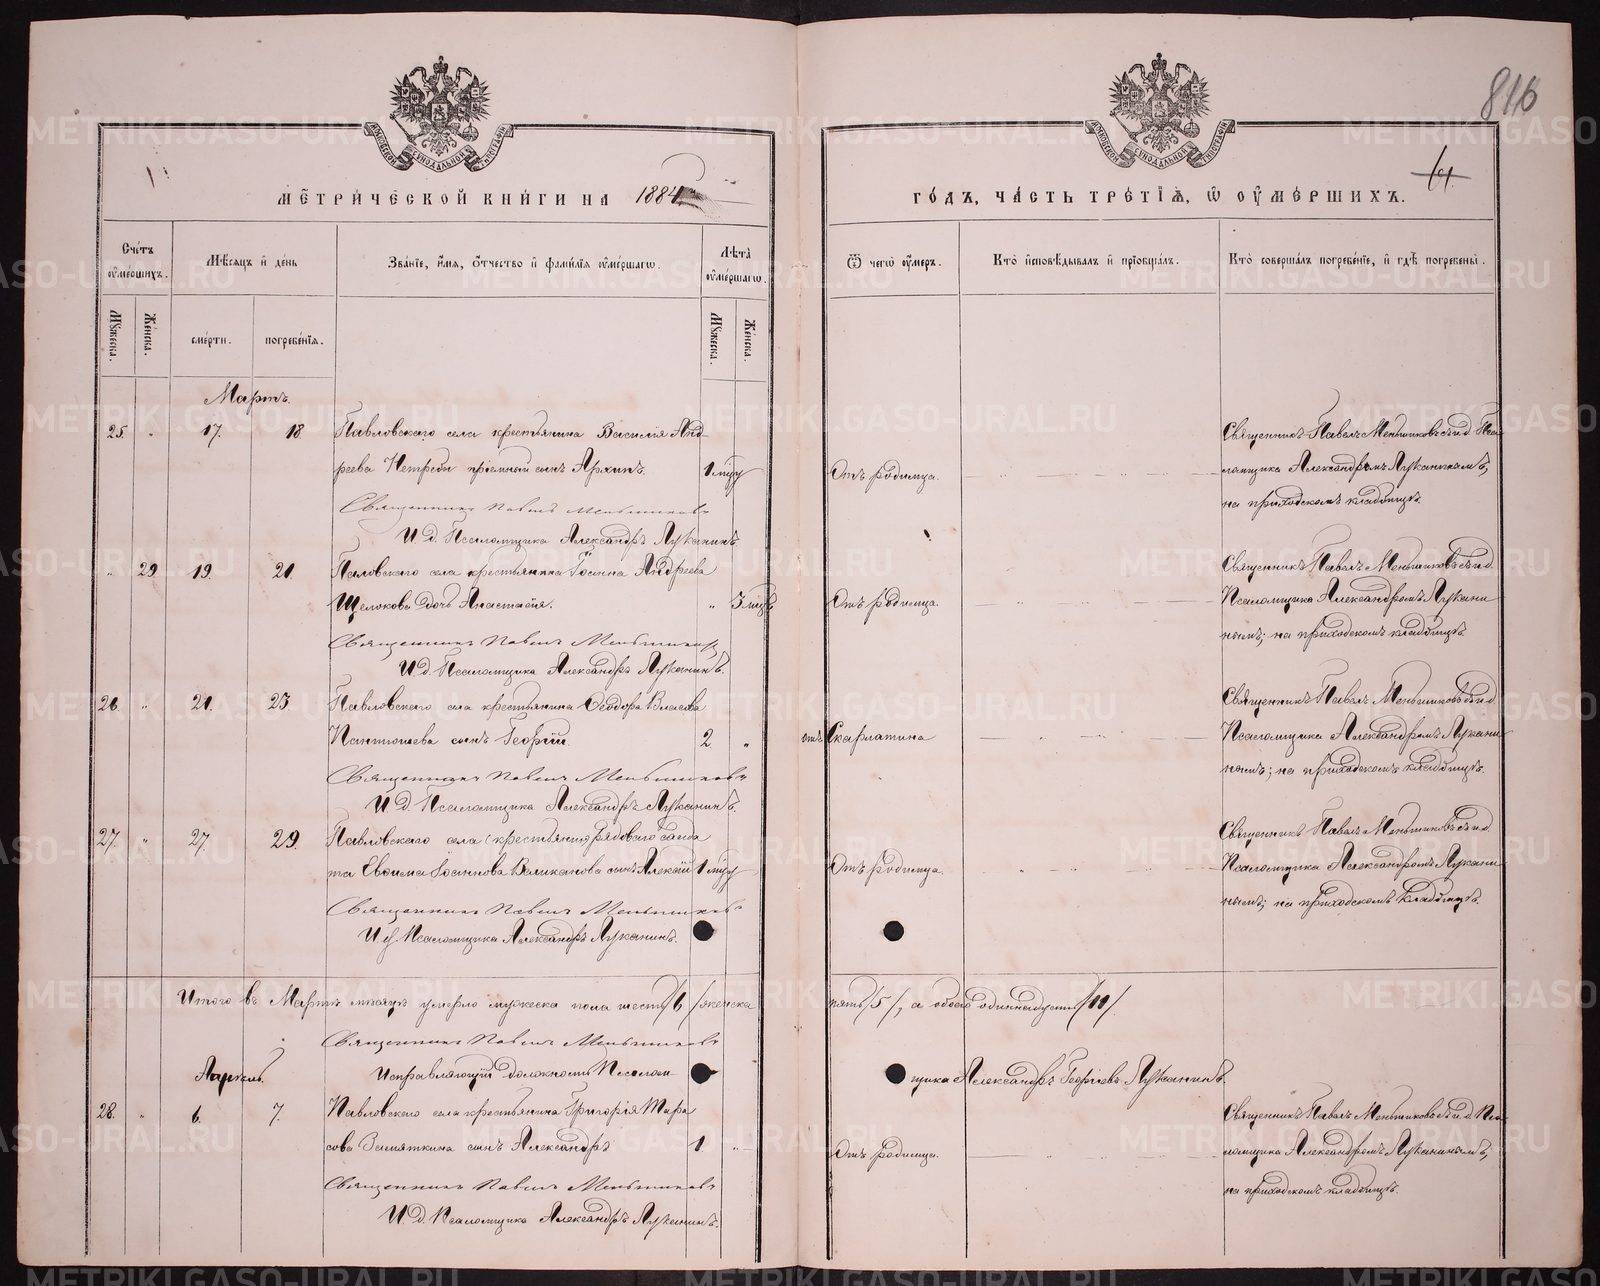 816
МОСКОВСКОЙ СѴНОДАЛЬНОЙ ТИПОГРАФІИ
МОСКОВСКОЙ СѴНОДАЛЬНОЙ ТИПОГРАФІИ
МЕТРИЧЕСКОЙ КНИГИ НА 1884
ГОДЪ, ЧАСТЬ ТРЕТІЯ, Ѿ ОУМЕРШИХЪ.
Счетъ оумершихъ.
Мѣсяцъ и день
Званіе, имя, отчество и фамилія оумершагѡ.
Лѣта оумершагѡ.
Ѿ чегѡ оумеръ.
Кто исповѣдывалъ и пріобщалъ.
Кто совершалъ погребеніе, и гдѣ погребены.
Мужеска.
Женска.
смерти.
погребенія.
Мужеска.
Женска.
Мартъ.
25. " 17. 18. Павловскаго села крестьянина Василія Анд-
реева Петрова пріемный сынъ Архипъ. 1 м.
Отъ родимца.
Священникъ Павелъ Меньшиковъ съ и.д. Пса-
ломщика Александромъ Луканинымъ,
на приходскомъ кладбищѣ.
Священникъ Павелъ Меньшиковъ
И.д. Псаломщика Александръ Луканинъ.
" 29 19. 21. Павловскаго села крестьянина Іоанна Андреева
Щелокова дочь Анастасія. " 3 м.
Отъ родимца.
Священникъ Павелъ Меньшиковъ съ и.д.
Псаломщика Александромъ Лукани
нымъ; на приходскомъ кладбищѣ.
Священникъ Павелъ Меньшиковъ
И.д. Псаломщика Александръ Луканинъ.
26. " 21. 23 Павловскаго села крестьянина Ѳеодора Власова
Пантюшева сынъ Георгій. 2 "
отъ Скарлатина
Священникъ Павелъ Меньшиковъ съ и.д.
Псаломщика Александромъ Лукани
нымъ; на приходскомъ кладбищѣ.
Священникъ Павелъ Меньшиковъ
И.д. Псаломщика Александръ Луканинъ.
27. " 27. 29. Павловскаго села (крестьянина) рядоваго солда
та Евѳима Іоаннова Великанова сынъ Алексій 1 м.
Отъ родимца.
Священникъ Павелъ Меньшиковъ съ и.д.
Псаломщика Александромъ Лукани
нымъ; на приходскомъ кладбищѣ.
Священникъ Павелъ Меньшиковъ
И.д. Псаломщика Александръ Луканинъ.
Итого въ Мартѣ мѣсяцѣ умерло мужеска пола шесть /6/ женска
пять /5/, а обоего одиннадцать /11/.
Священникъ Павелъ Меньшиковъ
Исправляющій должность Псалом-
щика Александръ Георгіевъ Луканинъ.
Апрель.
28. " 6. 7. Павловскаго села крестьянина Григорія Тара
сова Замяткина сынъ Александръ 1 "
Отъ родимца.
Священникъ Павелъ Меньшиковъ съ и.д. Пса-
ломщика Александромъ Луканинымъ,
на приходскомъ кладбищѣ.
Священникъ Павелъ Меньшиковъ
И.д. Псаломщика Александръ Луканинъ.
METRIKI.GASO-URAL.RU